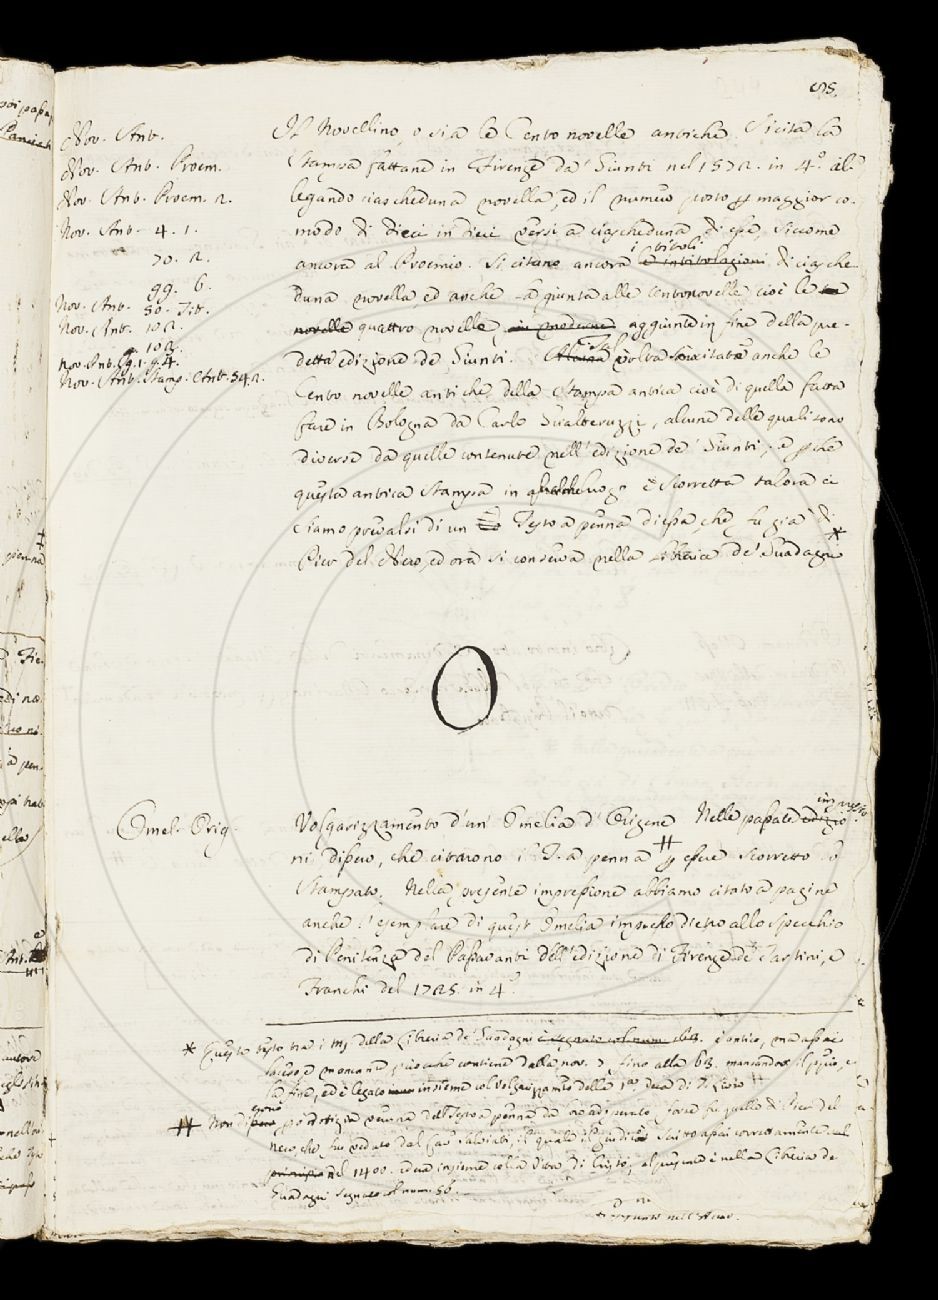 95.
Nov. Ant.
Nov. Ant. Proem.
Nov. Ant. Proem. 2.
Nov. Ant. 4. 1.
70. 2.
99. 6.
Nov. Ant. 80. Tit.
Nov. Ant. 102.
102.
Nov. Ant. Stamp. Ant. 54. 2.
Il Novellino, o sia le Cento novelle antiche. Si cita la
Stampa fattane in Firenze da' Giunti nel 1572. in 4.º al-
legando ciascheduna novella, ed il numero posto p maggior co-
modo di dieci in dieci versi a ciascheduna di esse, siccome
ancora al Proemio. Si citano ancora i titoli di ciasche-
duna novella ed anche la giunta alle cento novelle cioè le
quattro novelle aggiunte in fine della pre-
detta edizione de' Giunti. volta citate anche le
Cento novelle antiche della Stampa antica cioè di quella fatta
fare in Bologna da Carlo Gualteruzzi, alcune delle quali sono
diverse da quelle contenute nell'edizione de' Giunti; e pchè
questa antica Stampa in qualche luogo è scorretta talora ci
siamo prevalsi di un Testo a penna di essa che fu già di
Pier del Nero, ed ora si conserva nella Libreria de' Guadagni *
O
Omel. Orig.
Volgarizzamento d'un' Omelia d'Origene. Nelle passate impressio-
ni dissero, che citarono il T. a penna # p esser scorretto lo
Stampato. Nella presente impressione abbiamo citato a pagine
anche l'esemplare di quest'Omelia impresso dietro allo Specchio
di Penitenza del Passavanti dell'edizione di Firenze de' Tartini, e
Franchi del 1725. in 4.º
* Questo testo tra i ms della Libreria de' Guadagni è antico, ma assai
lacero e mancante contiene dalla nov. 7. fino alla 63. mancandovi il prin., e
la fine, ed è legato insieme col volgarizzamto della 1ª. deca di T. Livio
# Non di a penna da no adoperato, forse fu quello di Pier del
Nero che fu veduto dal Cav. Salviati, il quale il giudicò Scritto assai correttamente
nel 1400. insieme colla Vita di Cristo, al presente è nella Libreria de'
Guadagni segnato al num. 56.